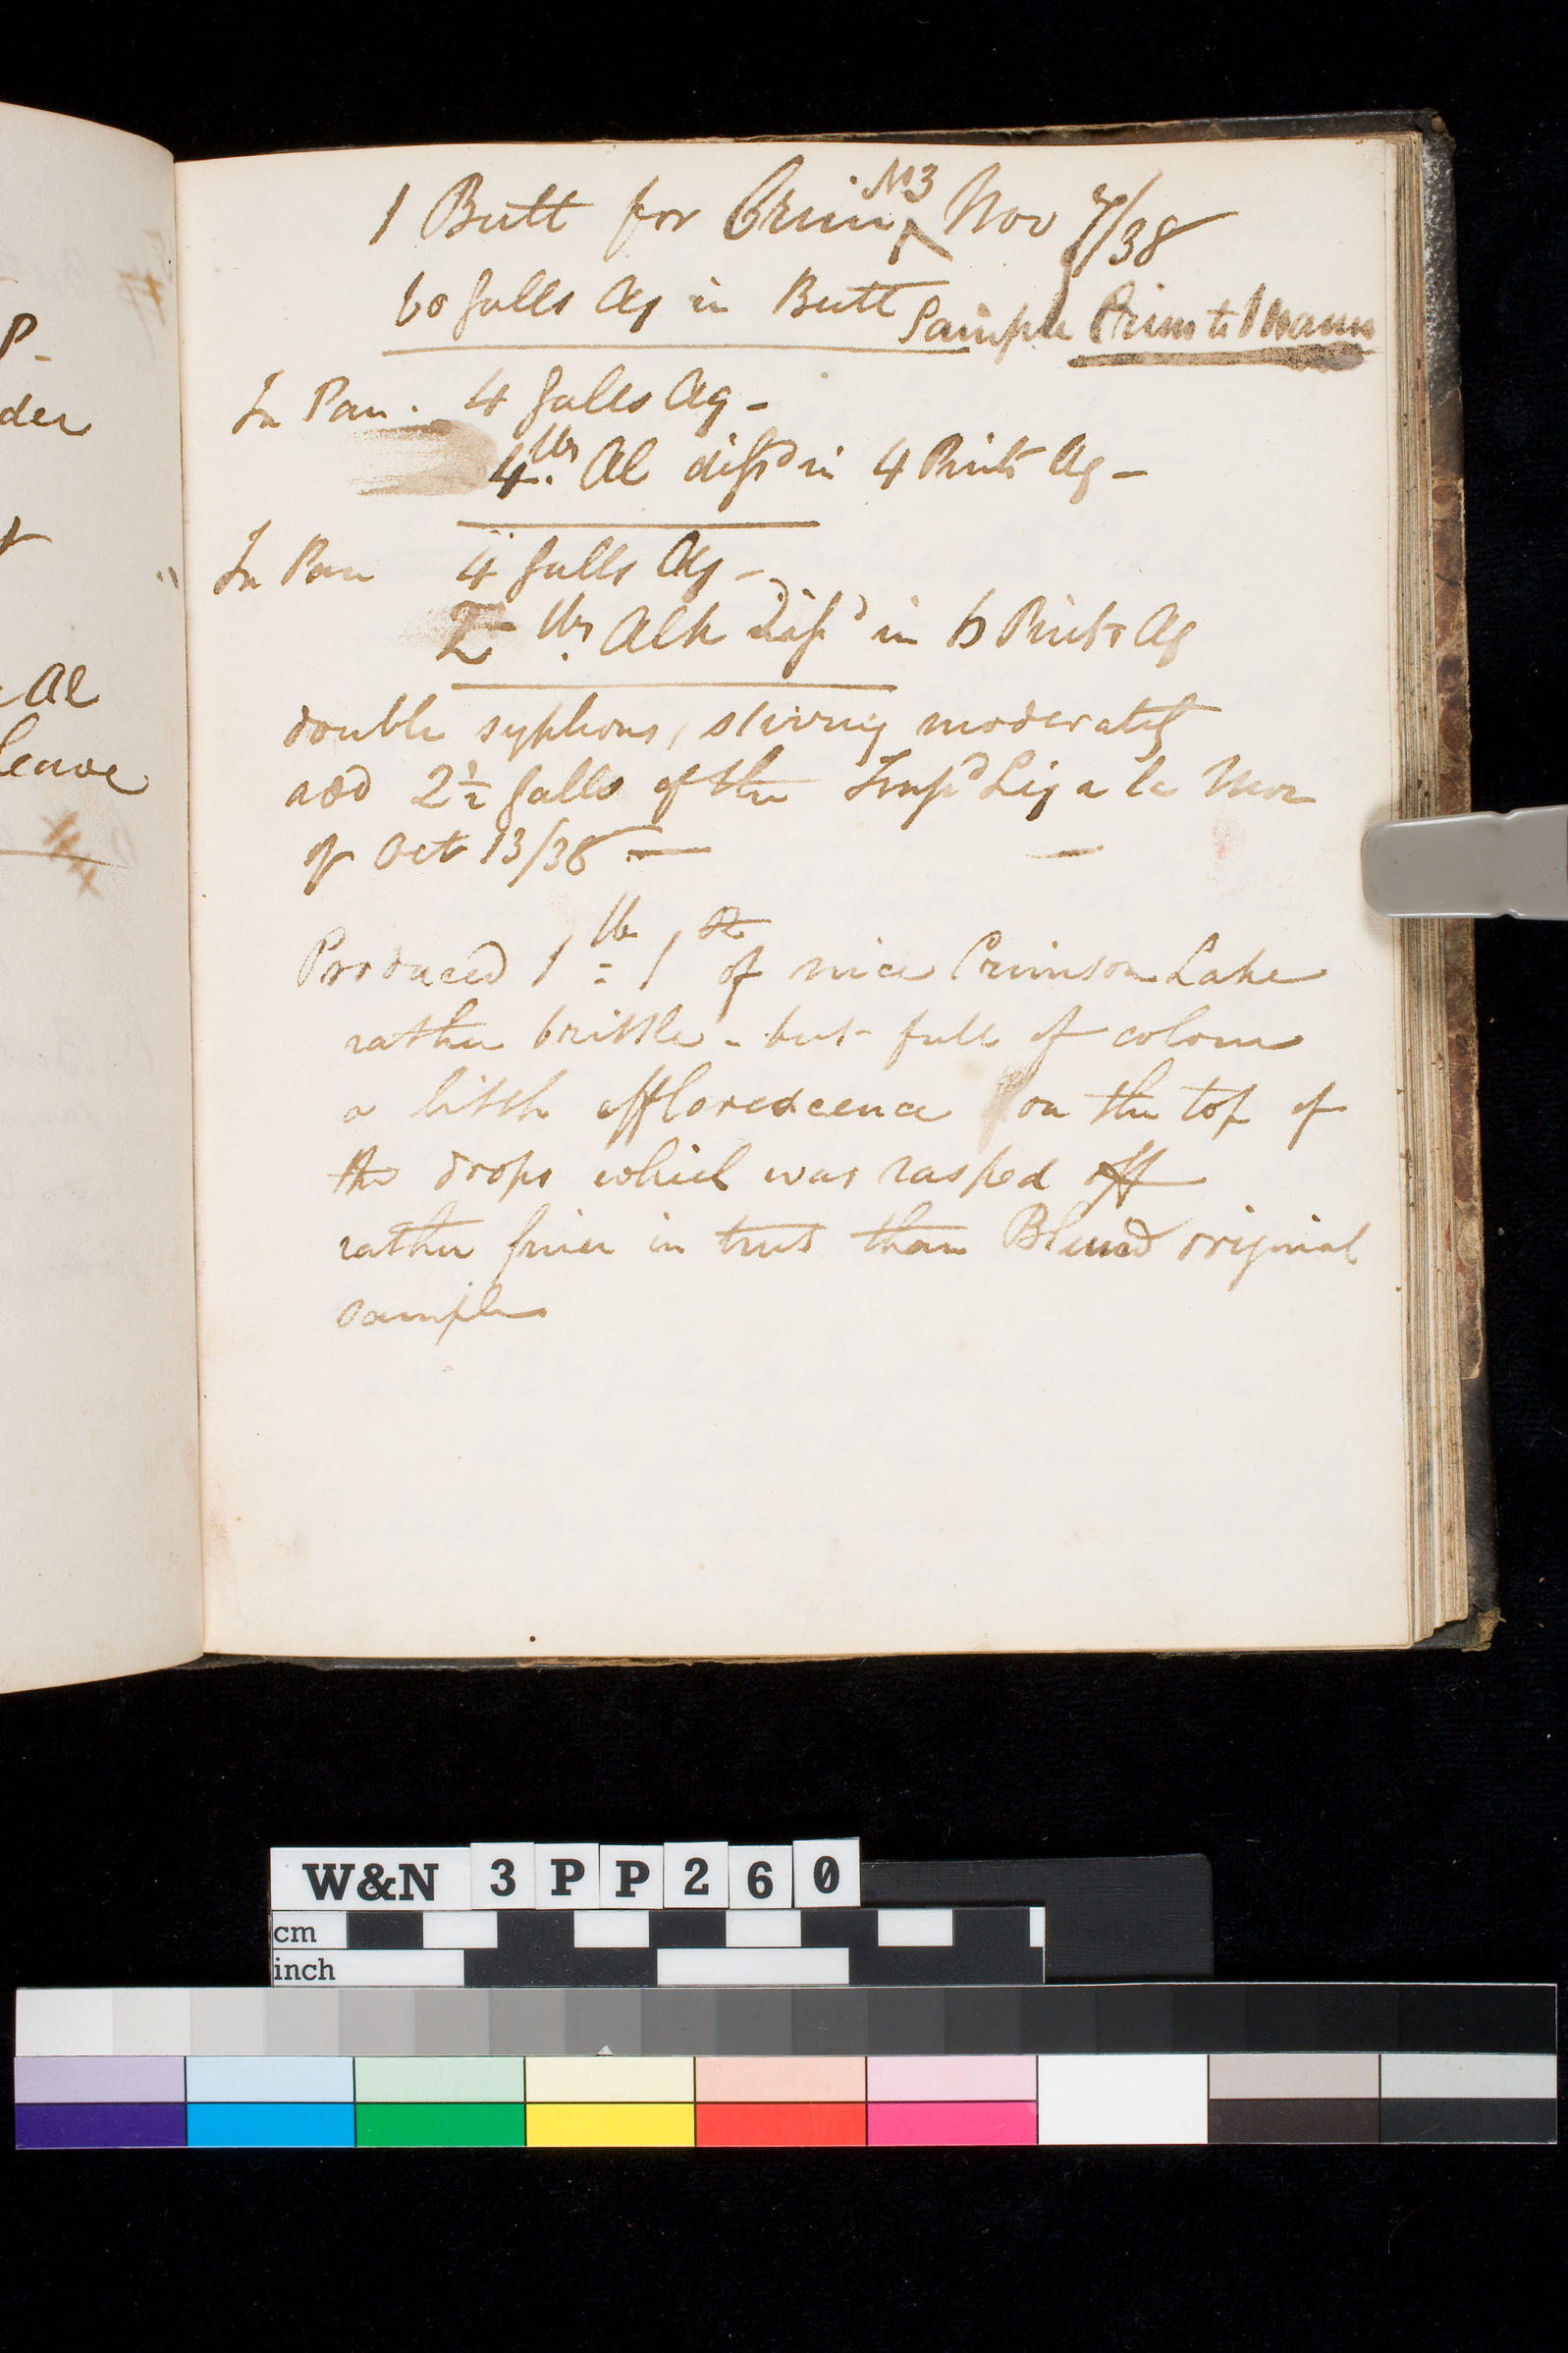 1 Butt for Crim No 3 Nov 7/38
60 galls Aq in Butt Sample Crim to
In Pan. 4 galls Aq -
4 lbs Al dissd in 4 Pints Aq -
In Pan 4 galls Aq -
2 lbs Alk dissd in 6 Pints Aq
double syphons, stirring moderately
add 2½ galls of the Impd Liq a la Mor
of Oct 13/38 —
Produced 1 lb 1 oz of nice Crimson Lake
rather brittle - but full of colour
a little efflorescence on the top of
the drops which was rasped off
rather finer in tint than original
sample
P-
der
Al
leave
W&N 3PP260
cm
inch